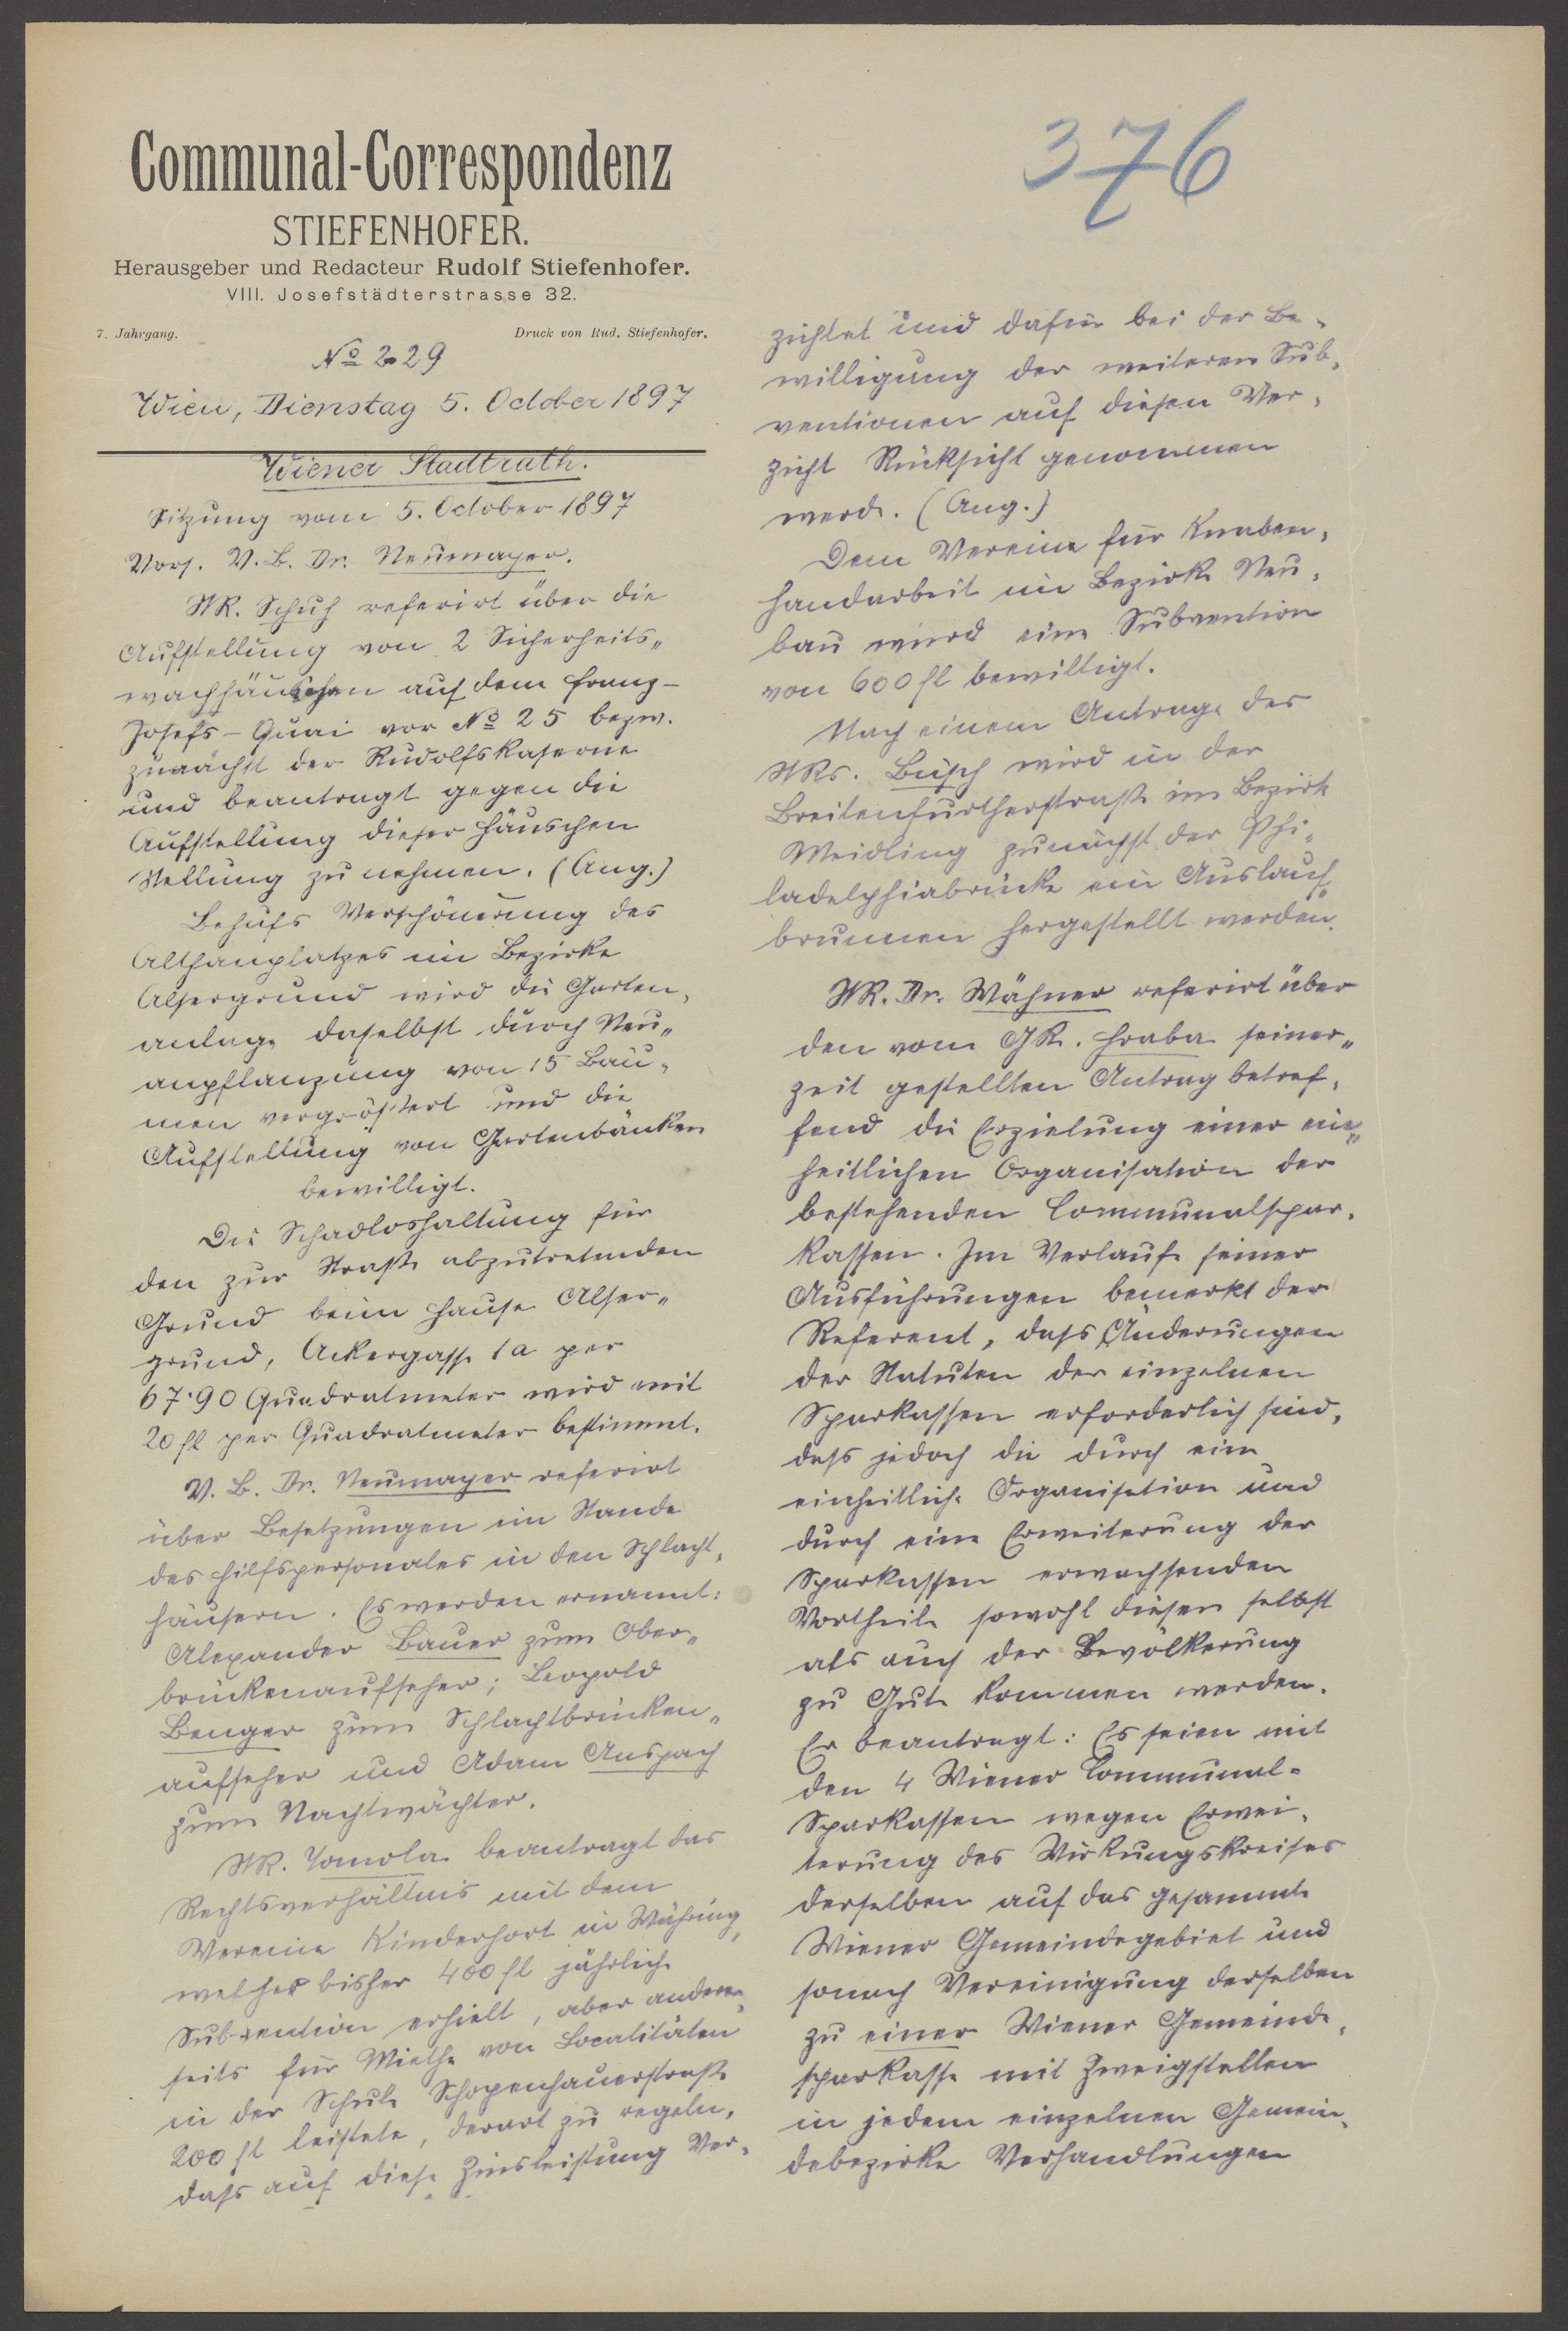 Communal-Correspondenz
STIEFENHOFER.
Herausgeber und Redacteur Rudolf Stiefenhofer.
VIII. Josefstädterstrasse 32.
7. Jahrgang.
Druck von Rud. Stiefenhofer.
№ 229
Wien, Dienstag 5. October 1897
Wiener Stadtrath.
Sitzung vom 5. October 1897
Vors. V. B. Dr. Neumayer.
StR. Schuh referirt über die
Aufstellung von 2 Sicherheits„
wachhäuschen auf dem Franz-
Josefs-Quai vor № 25 bezw.
zunächst der Rudolfskaserne
und beantragt gegen die
Aufstellung dieser Häuschen
Stellung zu nehmen. (Ang.)
Behufs Verschönerung des
Althanplatzes im Bezirke
Alsergrund wird die Garten„
anlage daselbst durch Neu„
anpflanzung von 15 Bäu„
men vergrößert und die
Aufstellung von Gartenbänken
bewilligt.
Die Schadloshaltung für
den zur Straße abzutretenden
Grund beim Hause Alser„
grund, Ackergasse 1a per
67·90 Quadratmeter wird mit
20 fl per Quadratmeter bestimmt.
V. B. Dr. Neumayer referirt
über Besetzungen im Stande
des Hilfspersonales in den Schlacht„
häusern. Es werden ernannt:
Alexander Bauer zum Ober„
brückenaufseher; Leopold
Benger zum Schlachtbrücken„
aufseher und Adam Anspach
zum Nachtwächter.
StR. Tomola beantragt das
Rechtsverhältnis mit dem
Vereine Kinderhort in Währing,
welcher bisher 400 fl jährliche
Subvention erhielt, aber anderer„
seits für Miethe von Localitäten
in der Schule Schopenhauerstraße
200 fl leistete, derart zu regeln,
dass auf diese Zinsleistung Ver„
376
zichtet und dafür bei der Be„
willigung der weiteren Sub„
ventionen auf diesen Ver„
zicht Rücksicht genommen
werde. (Ang.)
Dem Vereine für Knaben„
handarbeit im Bezirke Neu„
bau wird eine Subvention
von 600 fl bewilligt.
Nach einem Antrage des
StRs. Büsch wird in der
Breitenfurtherstraße im Bezirk
Meidling zunächst der Phi„
ladelphiabrücke ein Auslauf„
brunnen hergestellt werden.
StR. Dr. Wähner referirt über
den vom GR. Hraba seiner„
zeit gestellten Antrag betref„
fend die Erzielung einer ein„
heitlichen Organisation der
bestehenden Communalspar„
kassen. Im Verlaufe seiner
Ausführungen bemerkt der
Referent, dass Änderungen
der Statuten der einzelnen
Sparkassen erforderlich sind,
dass jedoch die durch eine
einheitliche Organisation und
durch eine Erweiterung der
Sparkassen erwachsenden
Vortheile sowohl diesen selbst
als auch der Bevölkerung
zu Gute kommen werden.
Er beantragt: Es seien mit
den 4 Wiener Communal-
Sparkassen wegen Erwei„
terung des Wirkungskreises
derselben auf das gesammte
Wiener Gemeindegebiet und
sonach Vereinigung derselben
zu einer Wiener Gemeinde„
sparkasse mit Zweigstellen
in jedem einzelnen Gemein„
debezirke Verhandlungen